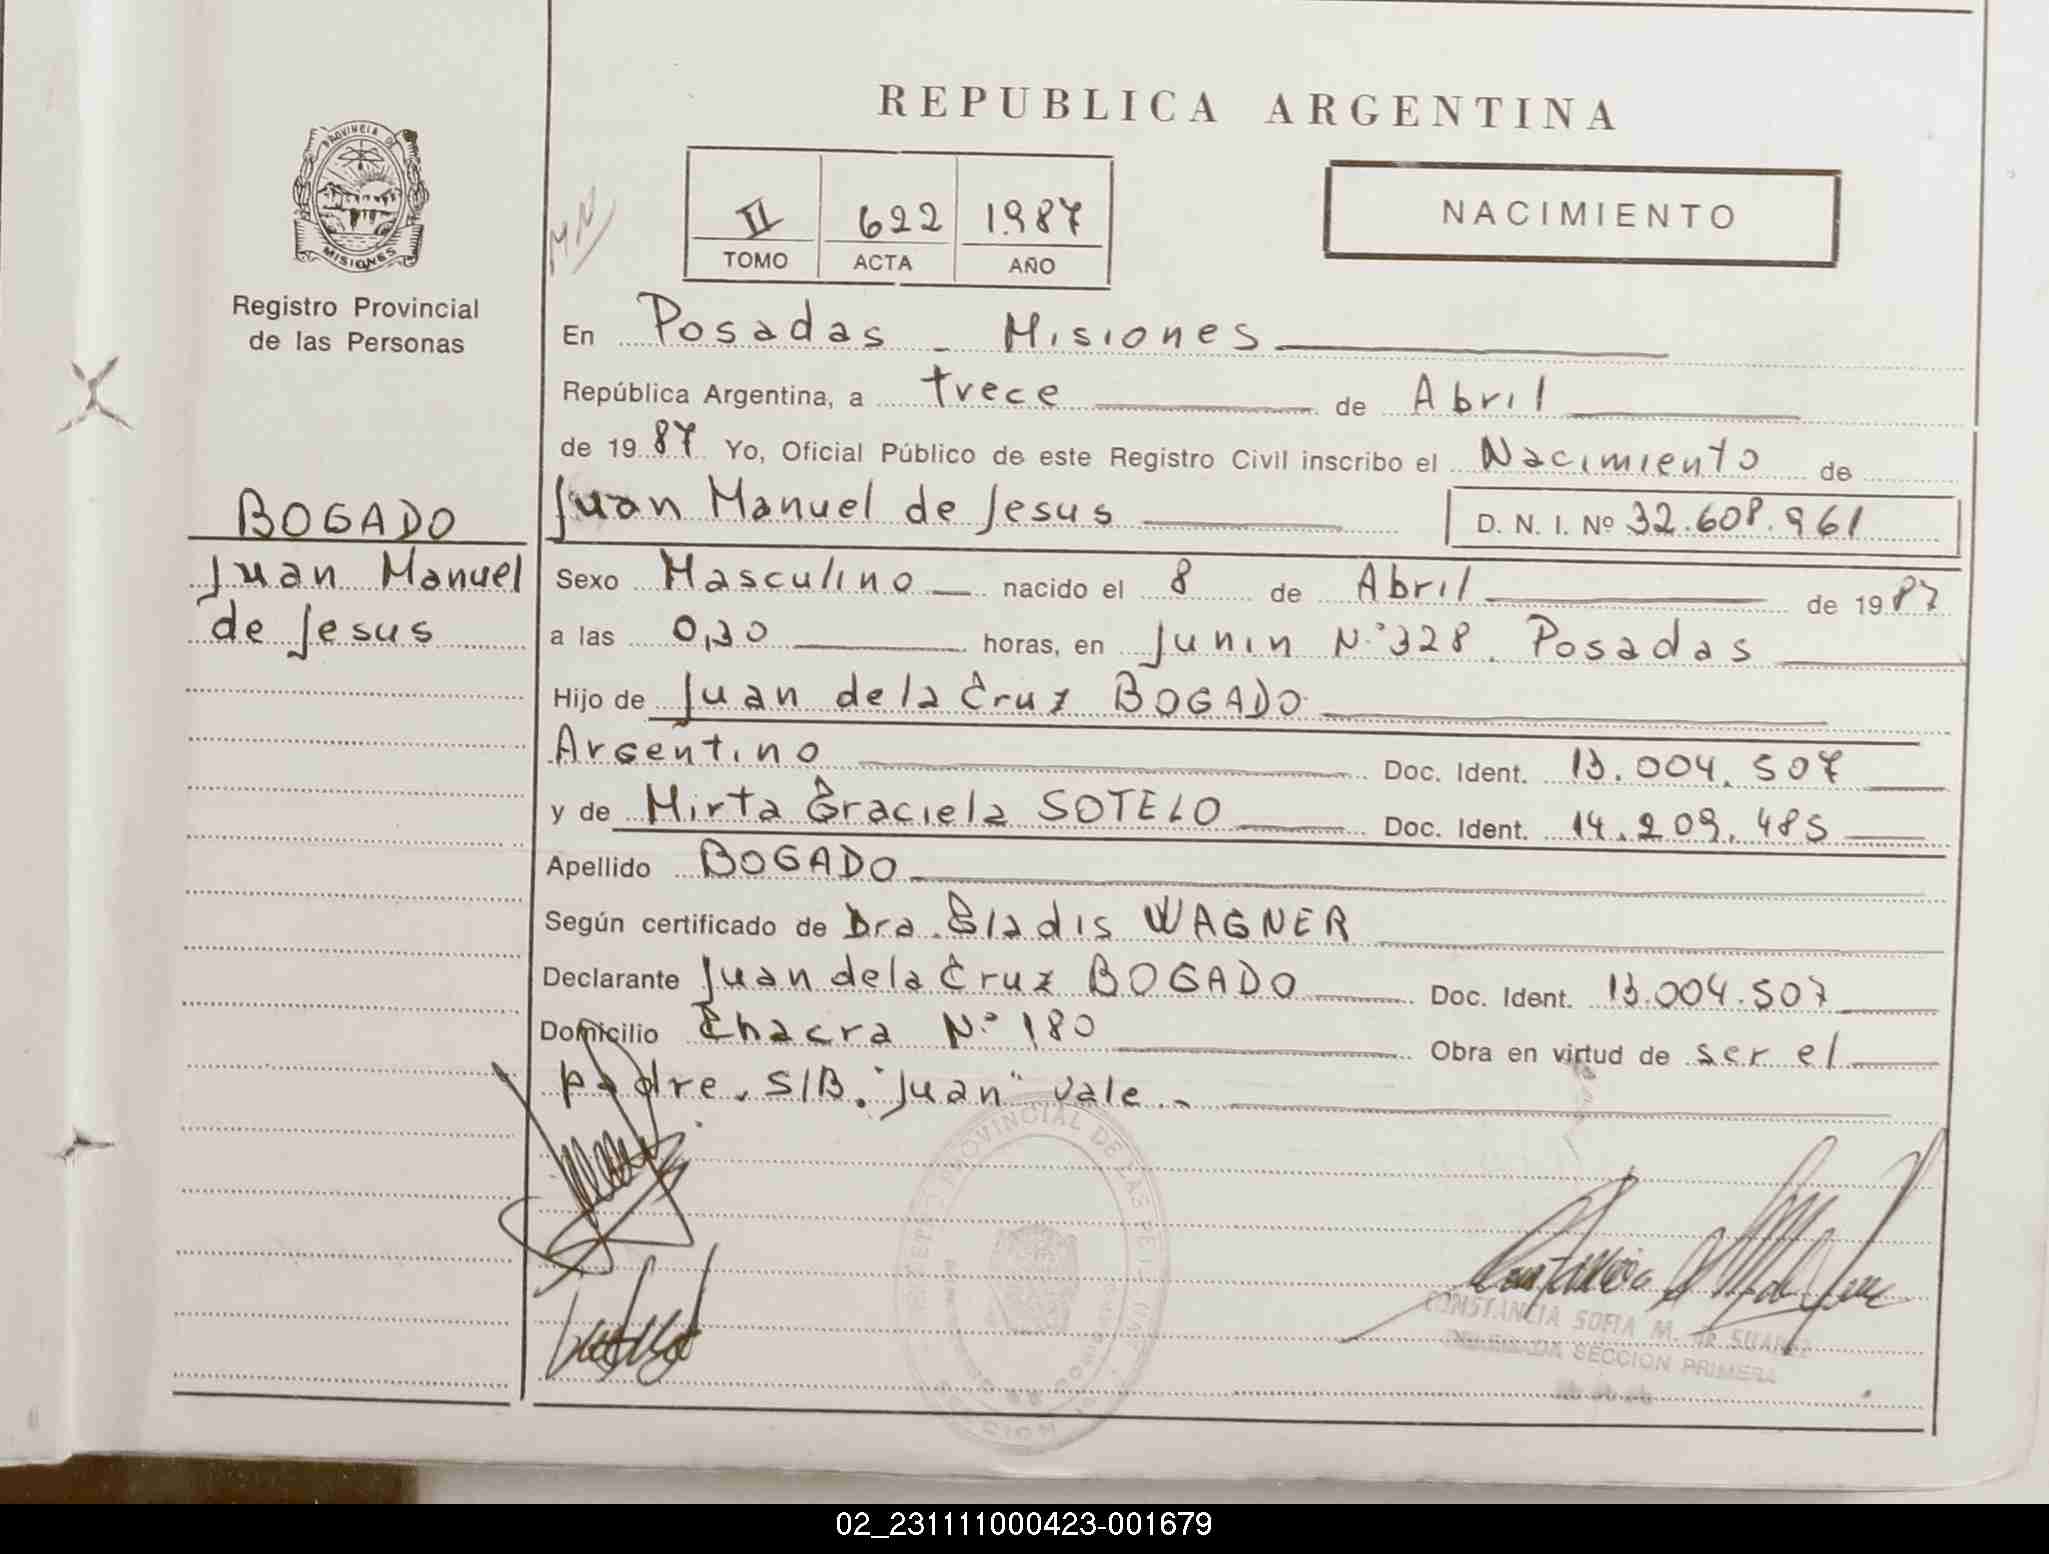 REPUBLICA ARGENTINA
PROVINCIA DE
MISIONES
Registro Provincial
de las Personas
BOGADO
Juan Manuel
de Jesus
II 622 1987
TOMO ACTA AÑO
NACIMIENTO
En Posadas - Misiones
República Argentina, a trece de Abril
de 1987 Yo, Oficial Público de este Registro Civil inscribo el Nacimiento de
Juan Manuel de Jesus D. N. I. Nº 32.608.961
Sexo Masculino nacido el 8 de Abril de 1987
a las 0,30 horas, en Junin N.º 328. Posadas
Hijo de Juan de la Cruz BOGADO
Argentino Doc. Ident. 13.004.507
y de Mirta Graciela SOTELO Doc. Ident. 14.209.485
Apellido BOGADO
Según certificado de Dra. Gladis WAGNER
Declarante Juan de la Cruz BOGADO Doc. Ident. 13.004.507
Domicilio Chacra N.º 180 Obra en virtud de ser el
padre. S/B. "Juan" vale.-
CONSTANCIA SOFIA M. de SUAREZ
DELEGADA SECCION PRIMERA
02_231111000423-001679